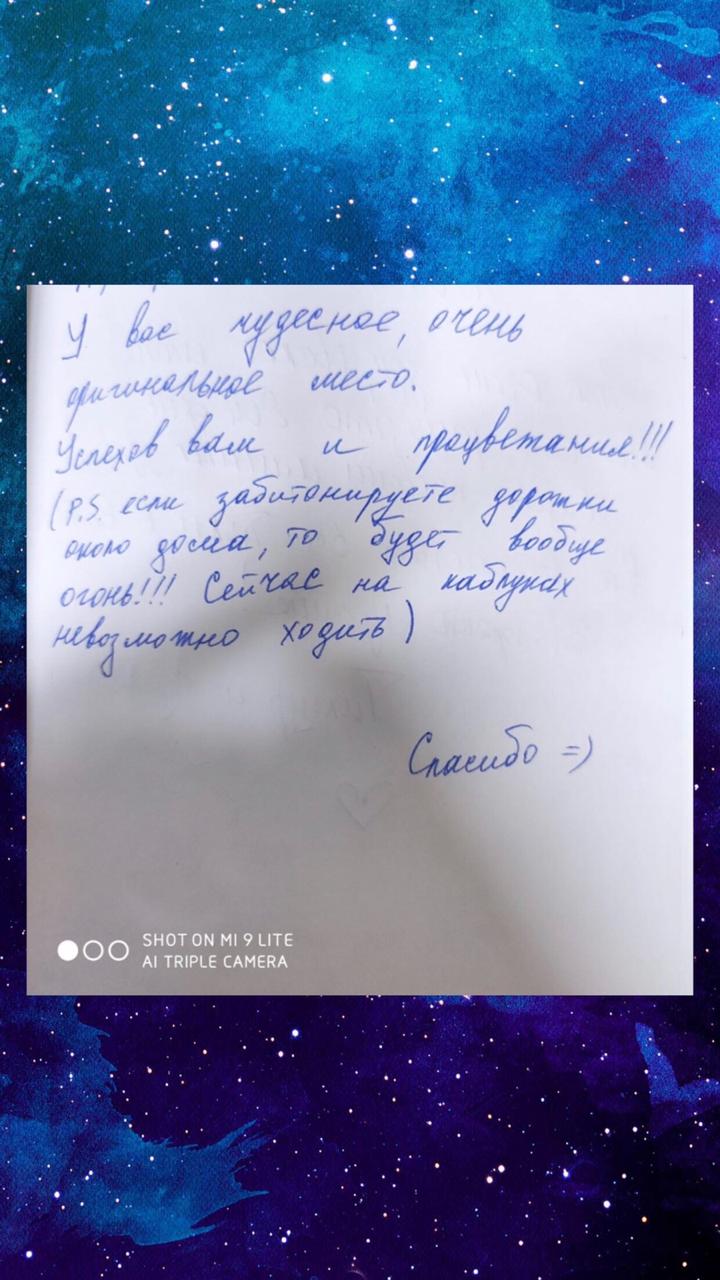 У вас чудесное, очень
оригинальное место.
Успехов вам и процветания!!!
(P.S. если забитонируете дорожки
около дома, то будет вообще
огонь!!! Сейчас на каблуках
невозможно ходить)
Спасибо =)
SHOT ON MI 9 LITE
AI TRIPLE CAMERA